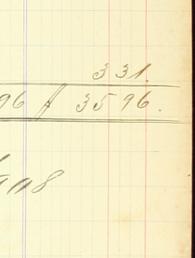 331.
96 / 3596.
908